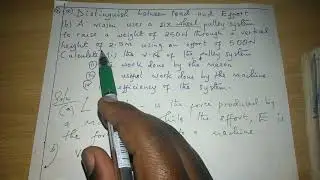 Q. (a) Distinguish between Load and Effort
(b) A mason uses a six wheel pulley system
to raise a weight of 250N through a vertical
height of 2.5m using an effort of 500N
Calculate (i) the V.R of the pulley system
work done by the mason
useful work done by the machine
efficiency of the system.
Soln
L is the force produced by
a while the effort, E is
the for to a machine
b)